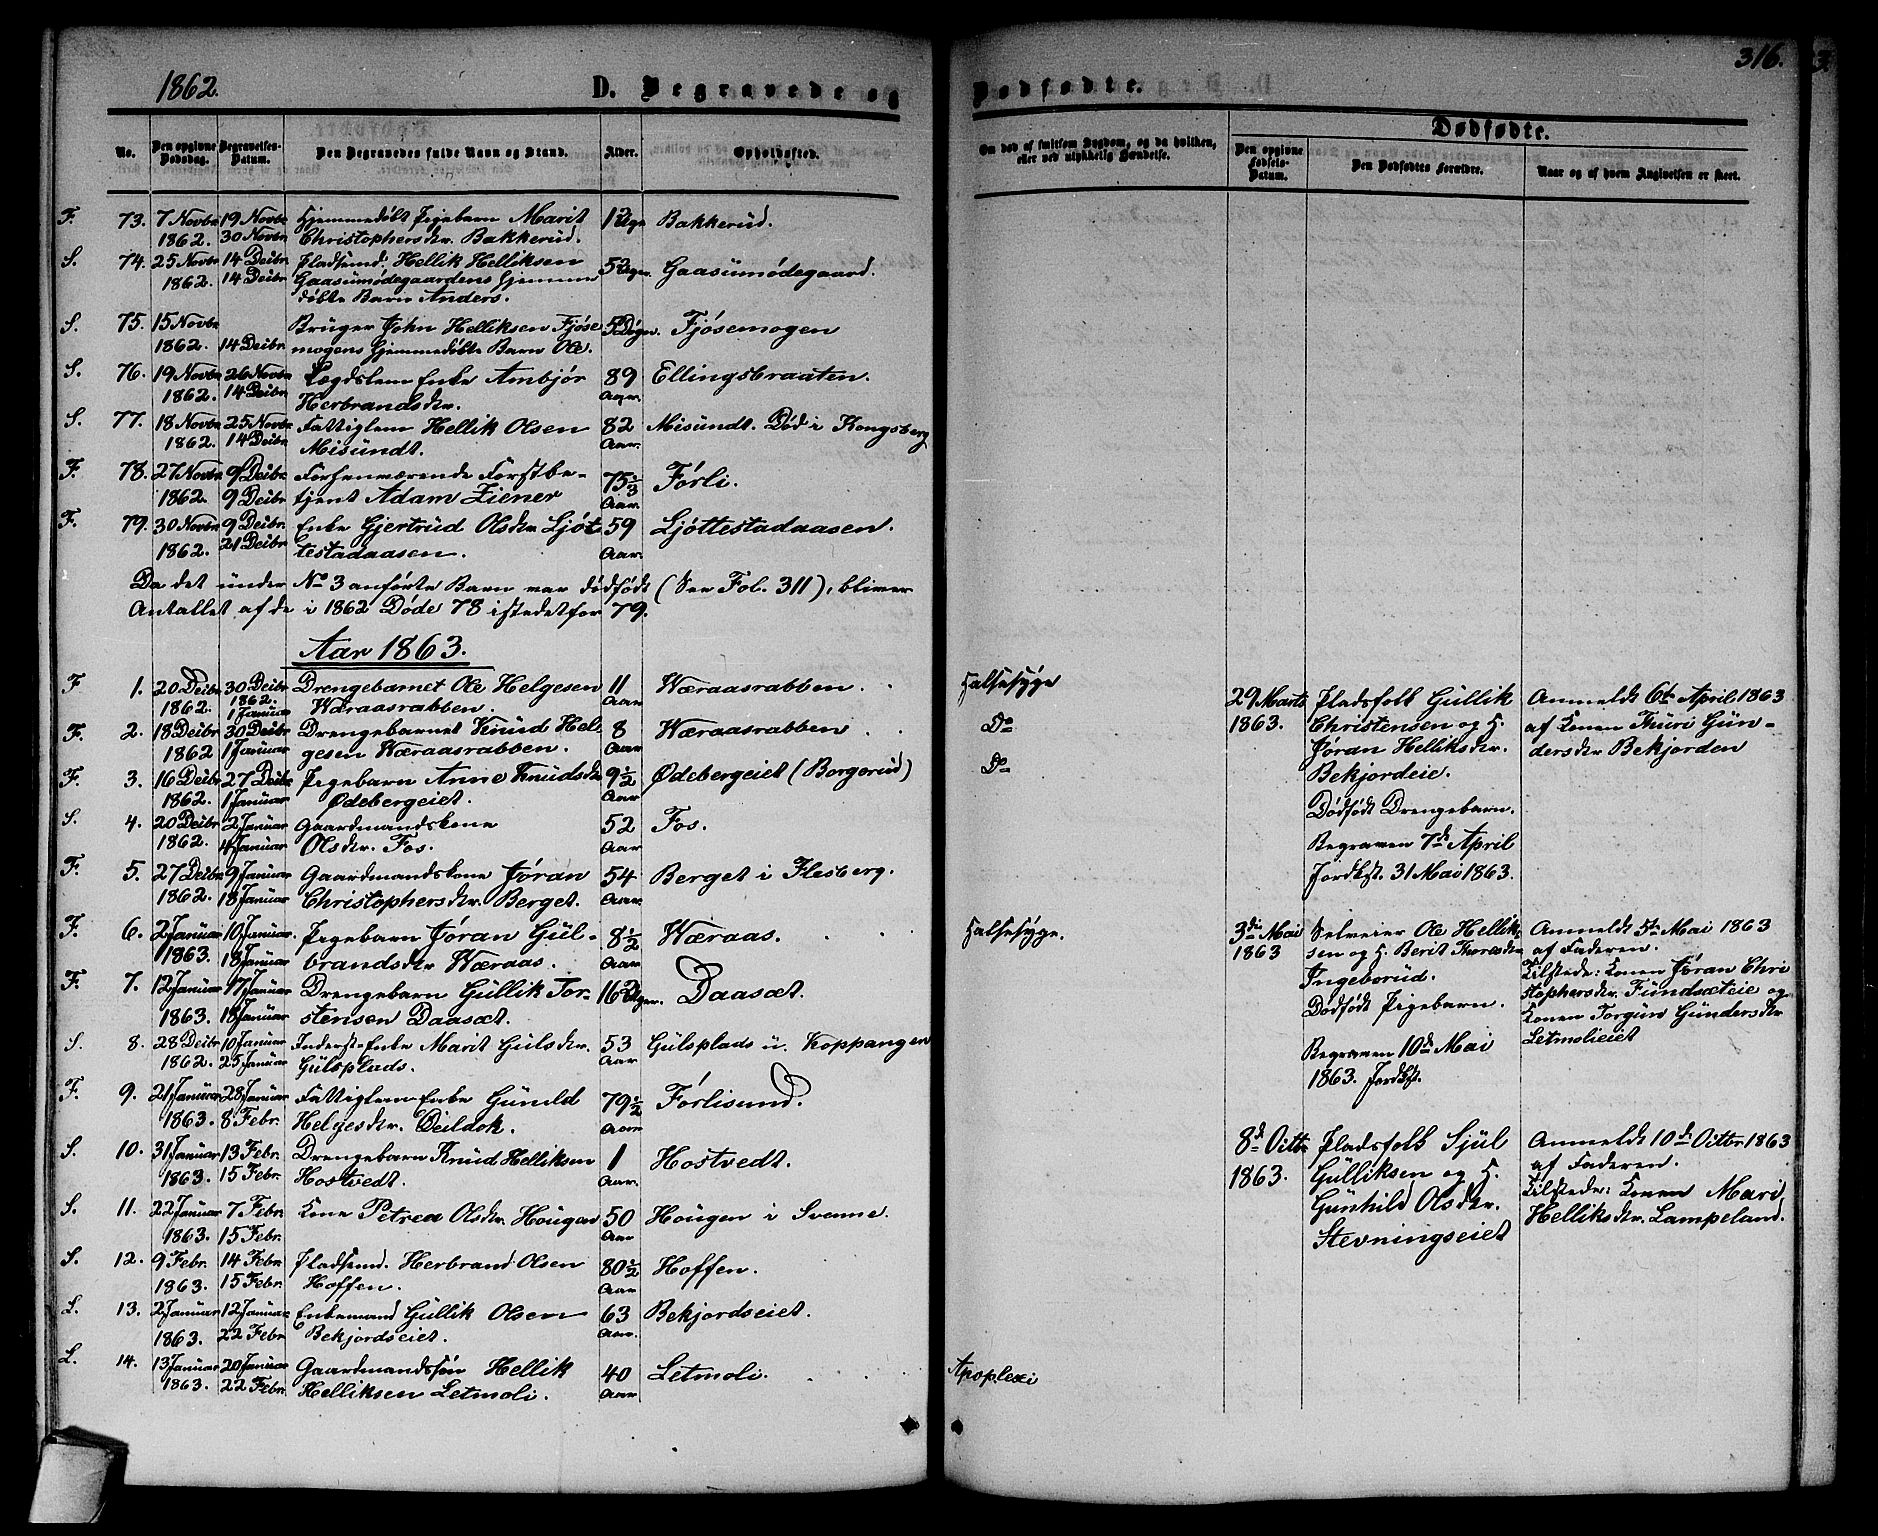 1862.
D. Begravede og
No.
Den opgivne Dødsdag.
Begravelses-Datum.
Den Begravedes fulde Navn og Stand.
Alder.
Opholdssted.
F. 73. 7 Novbr 19 Novbr Hjemmedøbt Pigebarn Marit 12 Uger Bakkerud.
1862. 30 Novbr Christophersdr. Bakkerud.
S. 74. 25 Novbr 14 Decbr Pladsmd. Hellik Helliksen 5 Uger. Gaasumødegaard.
1862. 14 Decbr Gaasumødegaardens Hjemme
døbte Barn Anders.
S. 75. 15 Novbr Bruger John Helliksen Fjøse Fjøsemogen
1862. 14 Decbr mogens Hjemmedøbte Barn Ole.
S. 76. 19 Novbr 26 Novbr Lægdslem Enke Ambjør 89 Ellingsbraaten.
1862. 14 Decbr Herbrandsdr. Aar.
S. 77. 18 Novbr 25 Novbr Fattiglem Hellik Olsen 82 Misundt. Død i Kongsberg
1862. 14 Decbr Misundt. Aar.
F. 78. 27 Novbr 9 Decbr Forhenværende Forstbe- 75 1/3 Førli.
1862. 9 Decbr tjent Adam Ziener Aar.
F. 79. 30 Novbr 9 Decbr Enke Gjertrud Olsdr Ljøt 59 Ljøttestadaasen.
1862. 21 Decbr testadaasen. Aar.
Da det under No 3 anførte Barn var dødfødt (See Fol. 311), bliver
Antallet af de i 1862 Døde 78 istedetfor 79.
Aar 1863.
F 1. 20 Decbr 30 Decbr Drengebarnet Ole Helgesen 11 Wæraasrabben.
1862. 1862. 1 Januar Wæraasrabben. Aar
F. 2. 18 Decbr 30 Decbr Drengebarnet Knud Hel- 8 Wæraasrabben
1862 1 Januar gesen Wæraasrabben. Aar
F 3. 16 Decbr 27 Decbr Pigebarn Anne Knudsdr 9 1/2 Ødebergeiet (Borgerud)
1862. 1 Januar Ødebergeiet. Aar
S. 4. 20 Decbr 2 Januar Gaardmandskone 52 Fos.
1862. 4 Januar Olsdr. Fos. Aar
F. 5. 27 Decbr 9 Januar Gaardmandskone Jøran 54 Berget i Flesberg.
1862. 18 Januar Christophersdr. Berget. Aar.
F. 6. 2 Januar 10 Januar. Pigebarn Jøran Gul- 8 1/2 Wæraas.
1863. 18 Januar brandsdr Wæraas. Aar
F. 7. 12 Januar 17 Januar Drengebarn Gullik Tor- 16 Uger. Daasæt.
1863. 18 Januar stensen Daasæt.
S. 8. 28 Decbr 10 Januar Inderst-Enke Marit Gulsdr. 53 Gulsplads u. Koppangen
1862. 25 Januar Gulsplads. Aar
F. 9. 21 Januar 28 Januar Fattiglem Enke Gunild 79 1/2 Førlisund.
1863. 8 Febr. Helgesdr. Deildok. Aar
S. 10. 31 Januar 13 Febr. Drengebarn Knud Helliksen 1 Hostvedt.
1863. 15 Febr. Hostvedt. Aar.
S. 11. 22 Januar 7 Febr. Kone Petrea Olsdr. Hougen 50 Hougen i Svenne.
1863. 15 Febr. Aar
S. 12. 9 Febr. 14 Febr. Pladsmd. Herbrand Olsen 80 1/2 Hoffen.
1863. 15 Febr. Hoffen. Aar
L. 13. 2 Januar 12 Januar Enkemand Gullik Olsen 63 Bekjordseiet.
1863. 22 Febr Bekjordseiet. Aar.
L. 14. 13 Januar 20 Januar Gaardmandssøn Hellik 40 Letmoli.
1863. 22 Febr. Helliksen Letmoli. Aar
316.
Dødfødte.
Om død af smitsom Sygdom, og da hvilken,
eller ved ulykkelig Hændelse.
Dødfødte.
Den opgivne Fødsels-Datum.
Den Dødfødtes Forældre.
Naar og af hvem Angivelsen er skeet.
Halsesyge
Do
Do
Halsesyge.
Apoplexi
29 Marts Pladsfolk Gullik Anmeldt 6te April 1863
1863. Christensen og H. af Konen Thuri Gun-
Jøran Helliksdr. dersdr Bekjorden
Bekjordeie.
Dødfødt Drengebarn.
Begraven 7de April
Jordkst. 31 Mai 1863.
3die Mai Selveier Ole Hellik- Anmeldt 5te Mai 1863
1863 sen og H. Berit Thoresdr af Faderen.
Ingeborud. Tilstede: Konen Jøran Chri
Dødfødt Pigebarn. stophersdr. Fundsæteie og
Begraven 10de Mai Konen Torgun Gundersdr
1863. Jordkst. Letmolieiet
8de Octbr Pladsfolk Sjul Anmeldt 10de Octbr 1863
1863. Gulliksen og H. af Faderen.
Gunhild Olsdr. Tilstede: Konen Mari
Stevningseiet Helliksdr. Lampeland.